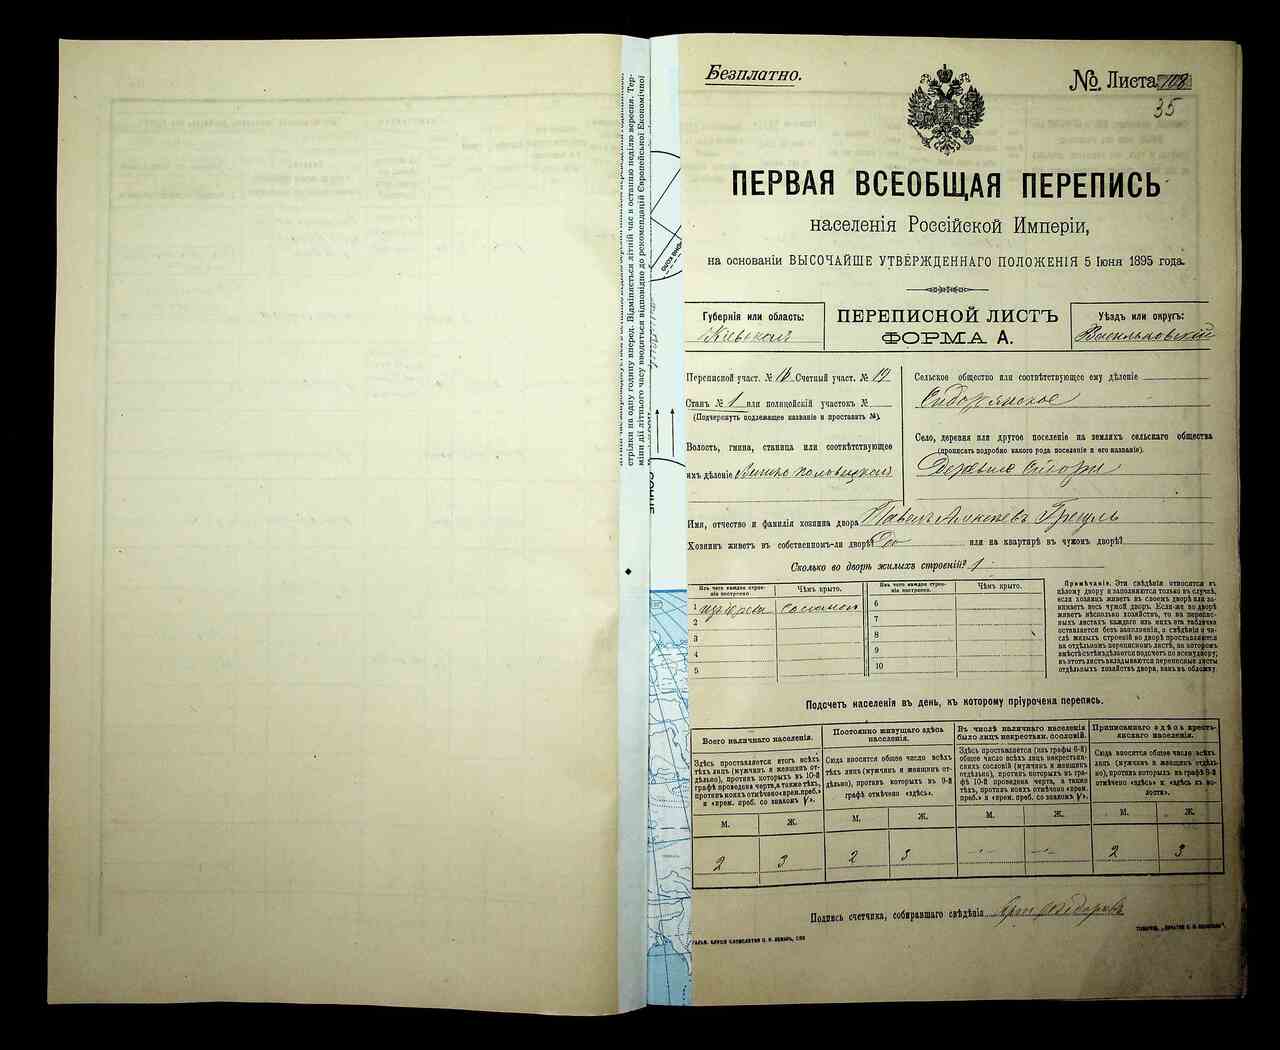 Безплатно.
№ Листа 108
35
ПЕРВАЯ ВСЕОБЩАЯ ПЕРЕПИСЬ
населенія Россійской Имперіи,
на основаніи ВЫСОЧАЙШЕ УТВЕРЖДЕННАГО ПОЛОЖЕНІЯ 5 Іюня 1895 года.
Губернія или область:
Кіевской
ПЕРЕПИСНОЙ ЛИСТЪ
ФОРМА А.
Уѣздъ или округъ:
Васильковскій
Переписной участ. № 16 Счетный участ. № 19
Станъ № 1 или полицейскій участокъ №
(Подчеркнуть подлежащее названіе и проставить №).
Волость, гмина, станица или соотвѣтствующее
ихъ дѣленіе
Сельское общество или соотвѣтствующее ему дѣленіе
Село, деревня или другое поселеніе на земляхъ сельскаго общества
(прописать подробно какого рода поселеніе и его названіе).
Деревня
Имя, отчество и фамилія хозяина двора Павелъ
Хозяинъ живетъ въ собственномъ-ли дворѣ? или на квартирѣ въ чужомъ дворѣ?
Сколько во дворѣ жилыхъ строеній? 1
Изъ чего каждое строеніе построено.
Чѣмъ крыто.
Изъ чего каждое строеніе построено.
Чѣмъ крыто.
1 Соломой
2
3
4
5
6
7
8
9
10
Примѣчаніе. Эти свѣдѣнія относятся къ
цѣлому двору и заполняются только въ случаѣ,
если хозяинъ живетъ въ своемъ дворѣ или за-
нимаетъ весь чужой дворъ. Если-же во дворѣ
живетъ нѣсколько хозяйствъ, то на перепис-
ныхъ листахъ каждаго изъ нихъ эта табличка
оставляется безъ заполненія, а свѣдѣнія о чи-
слѣ жилыхъ строеній во дворѣ проставляются
на отдѣльномъ переписномъ листѣ, на которомъ
вмѣстѣ съ тѣмъ дѣлается подсчетъ по всему двору;
въ этотъ листъ вкладываются переписные листы
отдѣльныхъ хозяйствъ двора, какъ въ обложку.
Подсчетъ населенія въ день, къ которому пріурочена перепись.
Всего наличнаго населенія.
Здѣсь проставляется итогъ всѣхъ
тѣхъ лицъ (мужчинъ и женщинъ от-
дѣльно), противъ которыхъ въ 10-й
графѣ проведена черта, а также тѣхъ,
противъ коихъ отмѣчено «врем. преб.»
и «врем. преб. со знакомъ V».
Постоянно живущаго здѣсь
населенія.
Сюда вносится общее число всѣхъ
тѣхъ лицъ (мужчинъ и женщинъ от-
дѣльно), противъ которыхъ въ 9-й
графѣ отмѣчено «здѣсь».
Въ числѣ наличнаго населенія
было лицъ некрестьян. сословій.
Здѣсь проставляется (изъ графы 6-й)
общее число всѣхъ лицъ некрестьян-
скихъ сословій (мужчинъ и женщинъ
отдѣльно), противъ которыхъ въ гра-
фѣ 10-й проведена черта, а также
тѣхъ, противъ коихъ отмѣчено «врем.
преб.» и «врем. преб. со знакомъ V».
Приписаннаго здѣсь кресть-
янскаго населенія.
Сюда вносится общее число всѣхъ
лицъ (мужчинъ и женщинъ отдѣль-
но), противъ которыхъ въ графѣ 8-й
отмѣчено «здѣсь» и «здѣсь въ во-
лости».
М. Ж. М. Ж. М. Ж. М. Ж.
2 3 2 3 — — 2 3
Подпись счетчика, собиравшаго свѣдѣнія
стрілки на одну годину вперед. Відміняється літній час в останню неділю вересня. Тер-
міни дії літнього часу вводяться відповідно до рекомендацій Європейської Економічної